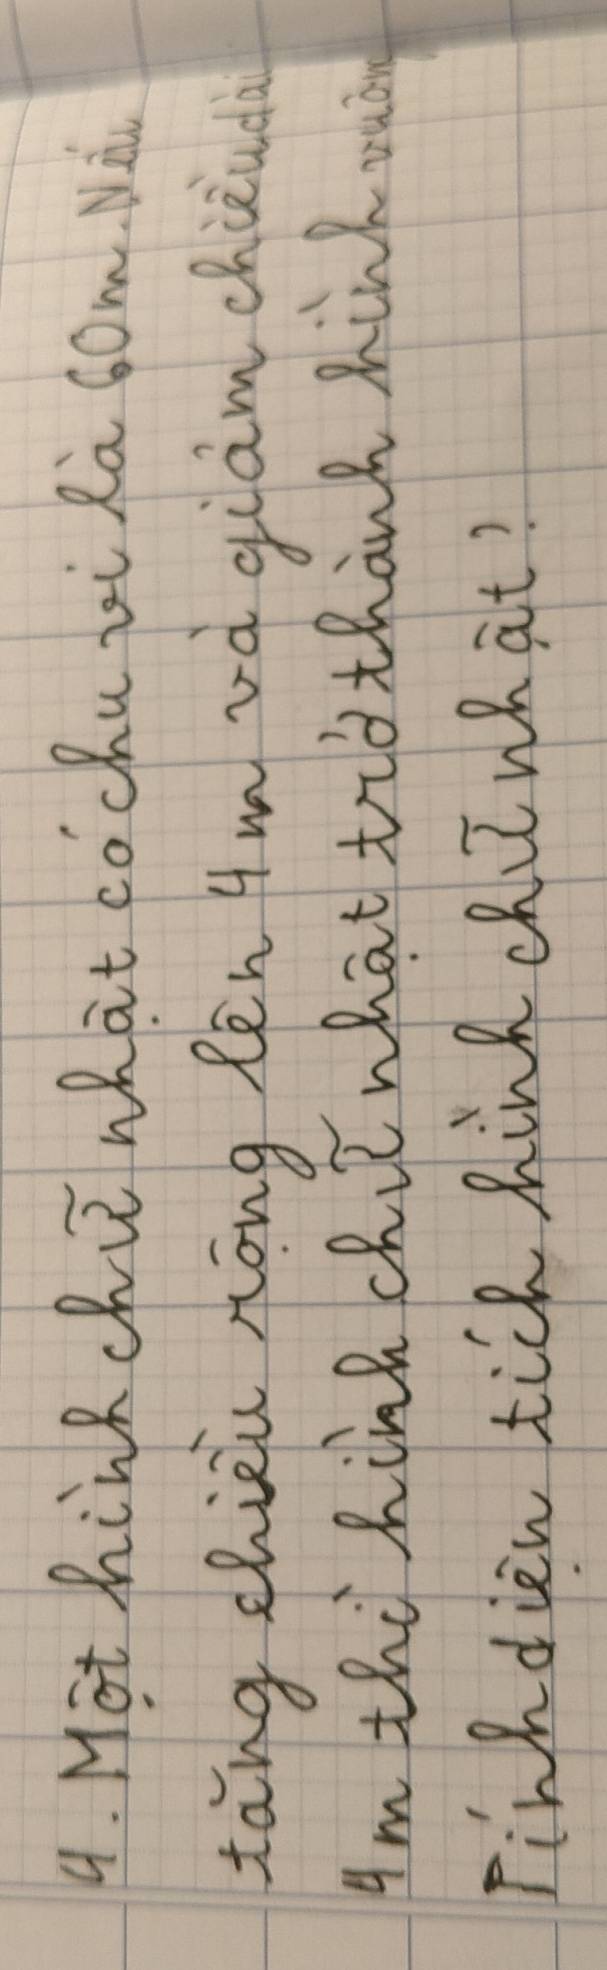 4. Một hình chữ nhật có chu vi là 60m. Nếu
tăng chiều rộng lên 4m và giảm chiều dài
4m thì hình chữ nhật trở thành hình vuôn
Tính diện tích hình chữ nhật?